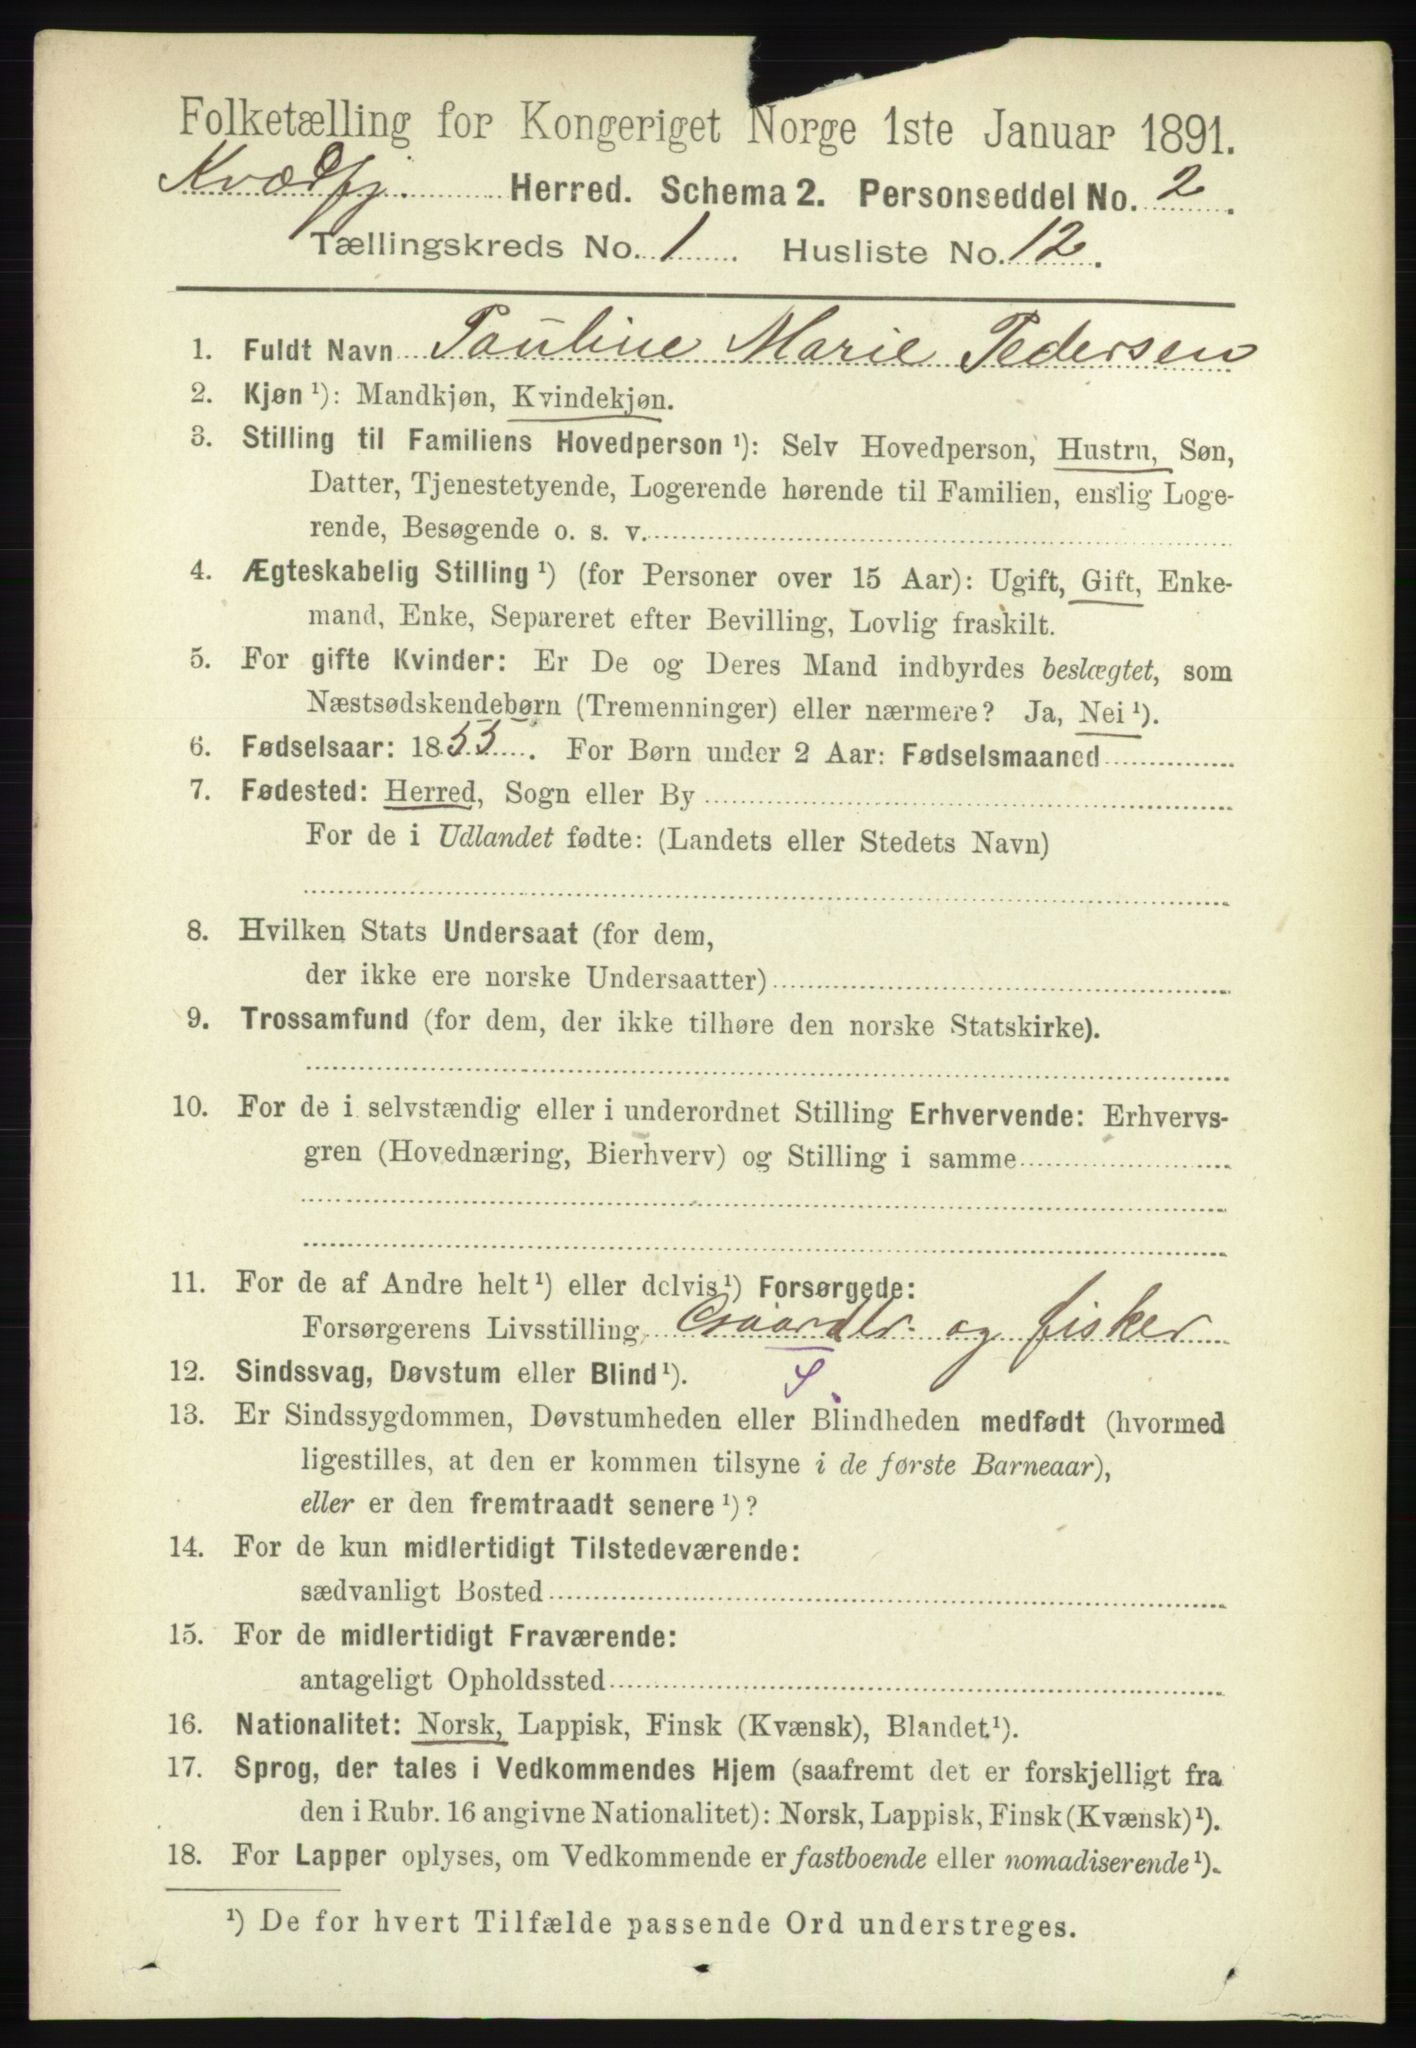 Folketælling for Kongeriget Norge 1ste Januar 1891.
Kvædfj. Herred. Schema 2. Personseddel No. 2.
Tællingskreds No. 1. Husliste No. 12.
1. Fuldt Navn Pauline Marie Pedersen
2. Kjøn¹): Mandkjøn, Kvindekjøn.
3. Stilling til Familiens Hovedperson¹): Selv Hovedperson, Hustru, Søn,
Datter, Tjenestetyende, Logerende hørende til Familien, enslig Loge-
rende, Besøgende o. s. v.
4. Ægteskabelig Stilling¹) (for Personer over 15 Aar): Ugift, Gift, Enke-
mand, Enke, Separeret efter Bevilling, Lovlig fraskilt.
5. For gifte Kvinder: Er De og Deres Mand indbyrdes beslægtet, som
Næstsødskendebørn (Tremenninger) eller nærmere? Ja, Nei¹).
6. Fødselsaar: 1855. For Børn under 2 Aar: Fødselsmaaned
7. Fødested: Herred, Sogn eller By
For de i Udlandet fødte: (Landets eller Stedets Navn)
8. Hvilken Stats Undersaat (for dem,
der ikke ere norske Undersaatter)
9. Trossamfund (for dem, der ikke tilhøre den norske Statskirke).
10. For de i selvstændig eller i underordnet Stilling Erhvervende: Erhvervs-
gren (Hovednæring, Bierhverv) og Stilling i samme
11. For de af Andre helt¹) eller delvis¹) Forsørgede:
Forsørgerens Livsstilling Gaardbr. og fisker
12. Sindssvag, Døvstum eller Blind¹). S.
13. Er Sindssygdommen, Døvstumheden eller Blindheden medfødt (hvormed
ligestilles, at den er kommen tilsyne i de første Barneaar),
eller er den fremtraadt senere¹)?
14. For de kun midlertidigt Tilstedeværende:
sædvanligt Bosted
15. For de midlertidigt Fraværende:
antageligt Opholdssted
16. Nationalitet: Norsk, Lappisk, Finsk (Kvænsk), Blandet¹).
17. Sprog, der tales i Vedkommendes Hjem (saafremt det er forskjelligt fra
den i Rubr. 16 angivne Nationalitet): Norsk, Lappisk, Finsk (Kvænsk)¹).
18. For Lapper oplyses, om Vedkommende er fastboende eller nomadiserende¹).
¹) De for hvert Tilfælde passende Ord understreges.